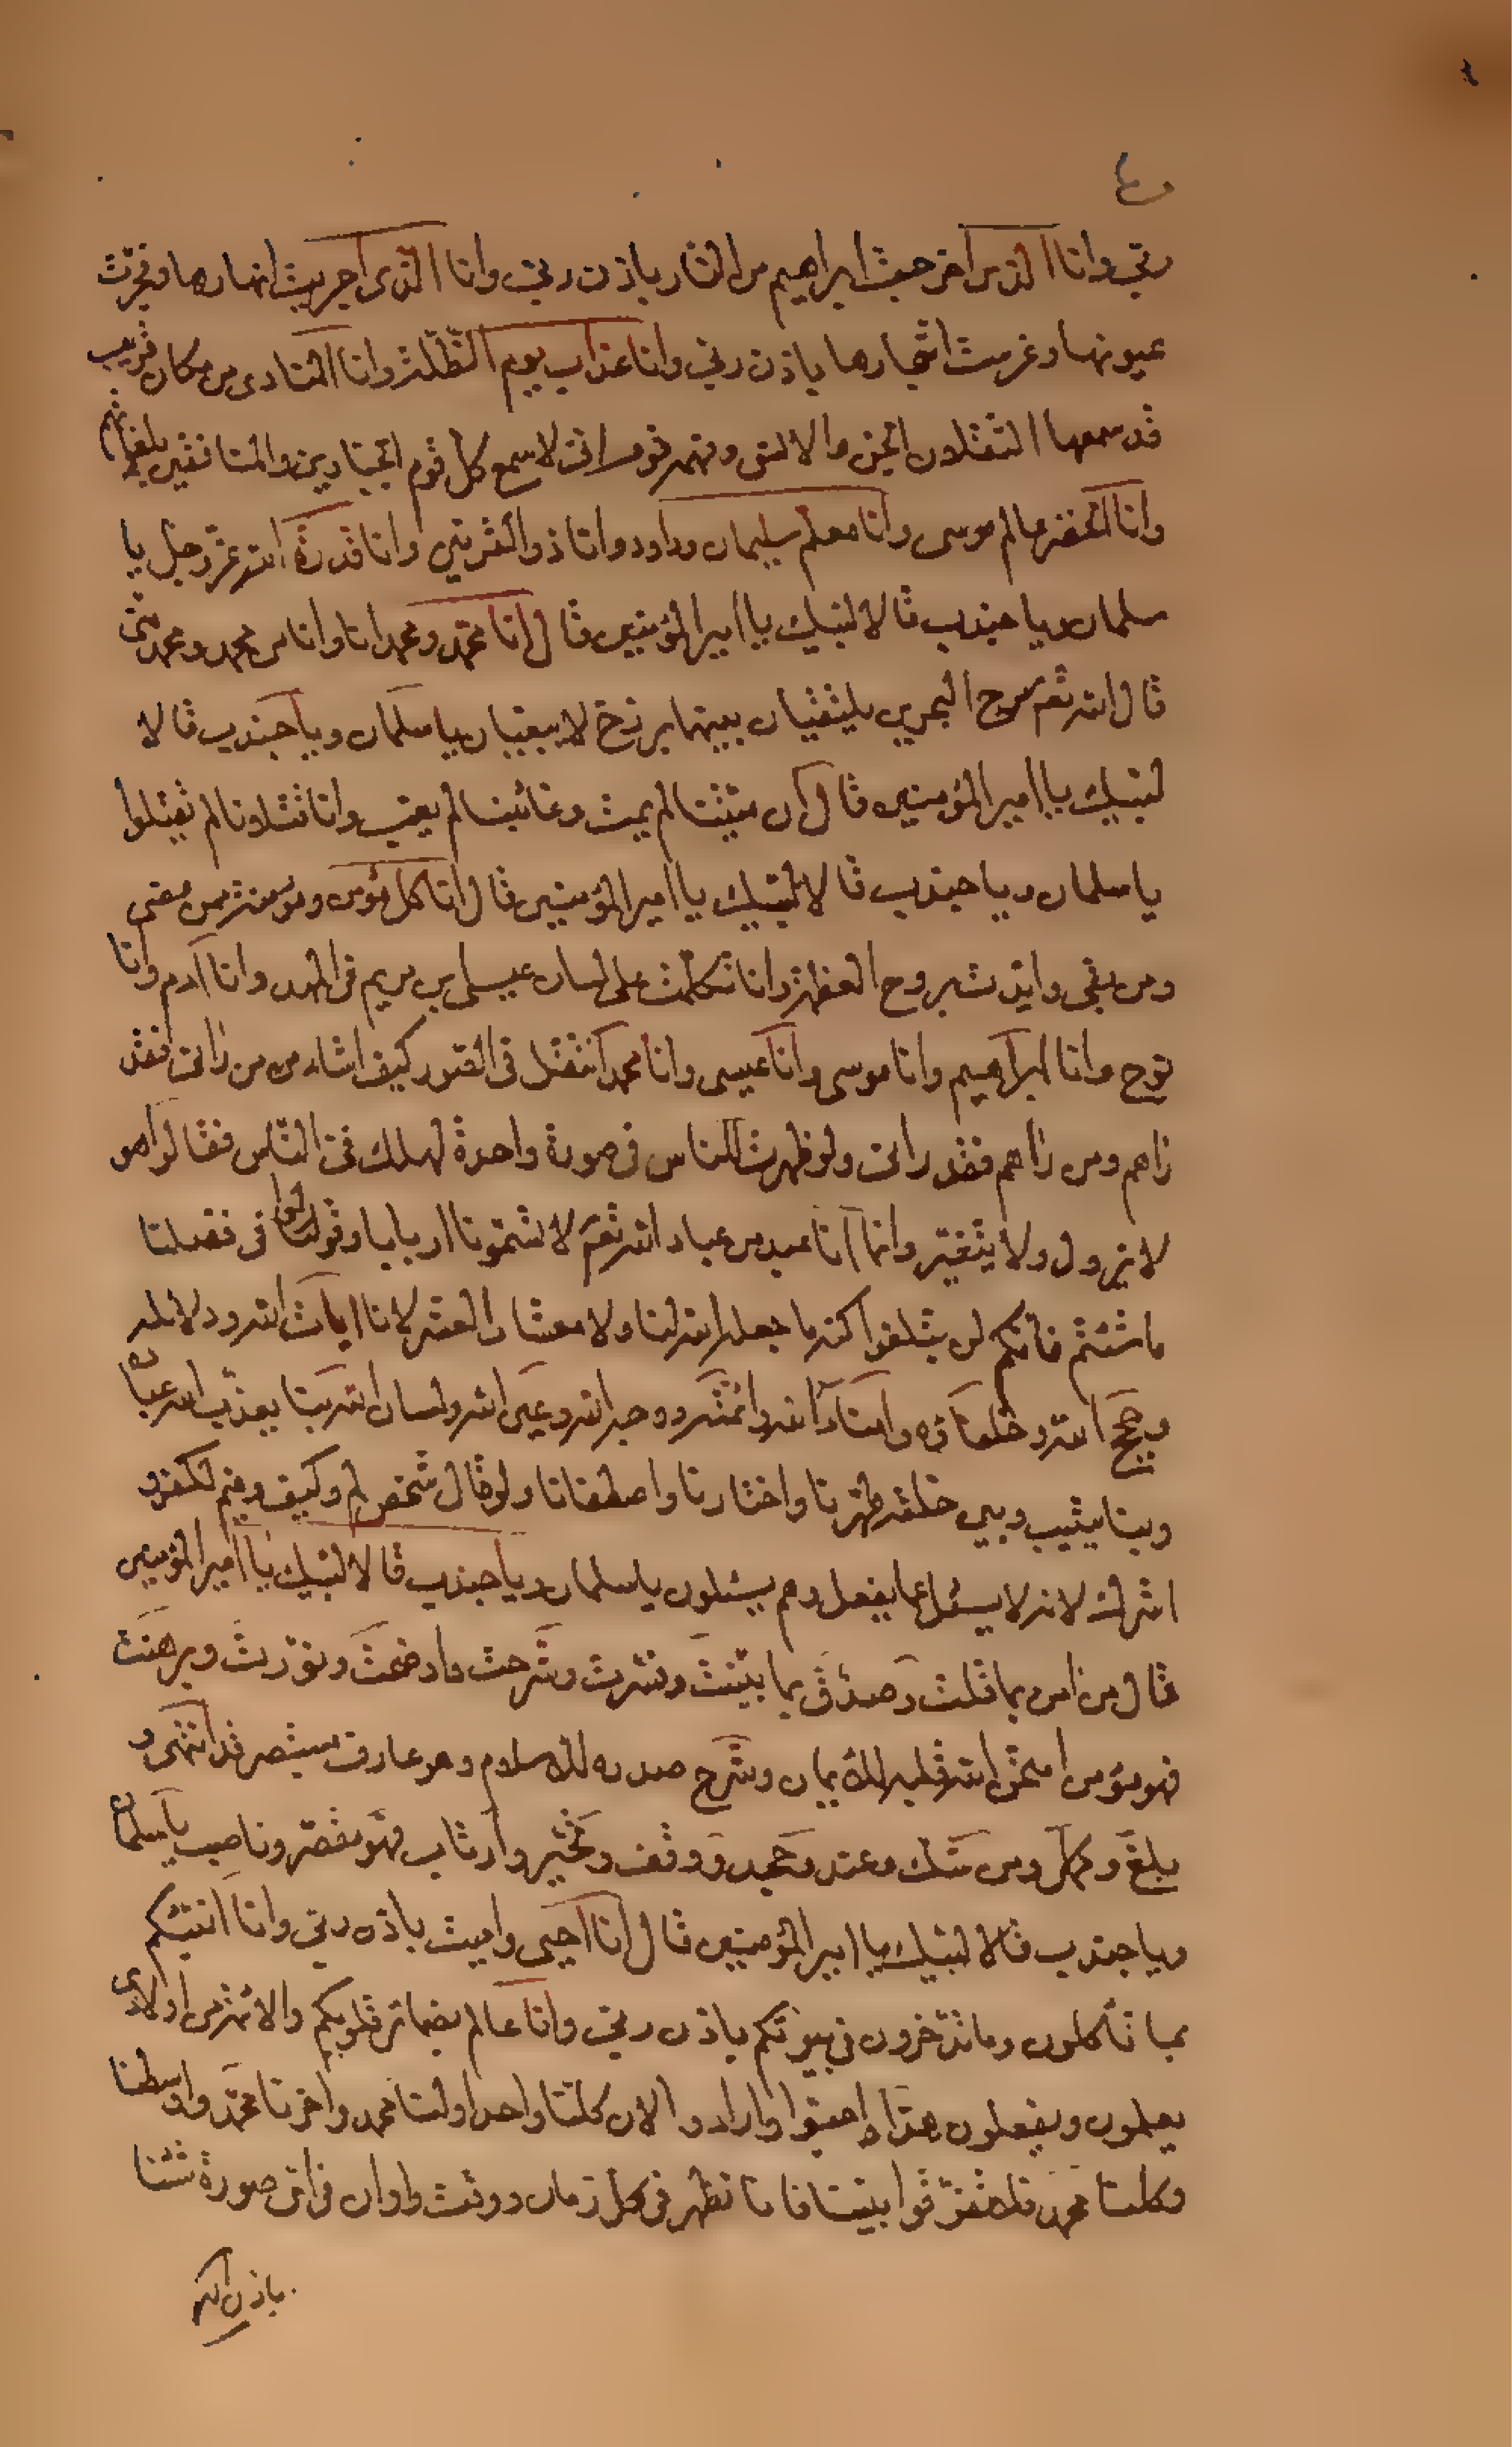 ربي وانا الذي اخرجت ابراهيم من النار باذن ربي وانا الذي اجريت انهارها وفجرت
عيونها وغرست اشجارها باذن ربي وانا عذاب يوم الظلة وانا المنادى من مكان قريب
قد سمعها الثقلان الجن والانس وفهمه قوم انى لاسمع كل قوم الجبارين والمنافقين بلغاتهم
وانا الخضر عالم موسى وانا معلم سليمان وداود وانا ذو القرنين وانا قدرة الله عز وجل يا
سلمان ويا جندب قالا لبيك يا امير المؤمنين قال انا محمد ومحمد انا وانا من محمد ومحمد منى
قال الله تعم مرج البحرين يلتقيان بينهما برزخ لا يبغيان يا سلمان ويا جندب قالا
لبيك يا امير المؤمنين قال ان ميتنا لم يمت وغائبنا لم يغب وانا قتلانا لم يقتلوا
يا سلمان ويا جندب قالا لبيك يا امير المؤمنين قال انا كل مؤمن ومؤمنة ممن مضى
وممن بقى وايدت بروح العظمة وانا تكلمت على لسان عيسى بن مريم فى المهد وانا آدم وانا
نوح وانا ابراهيم وانا موسى وانا عيسى وانا محمد انتقل فى الصور كيف اشاء من رانى فقد
راهم ومن راهم فقد رانى ولو ظهرت للناس فى صورة واحدة لهلك فى الناس فقالوا هو
لا يزول ولا يتغير وانما انا عبد من عباد الله تعم لا تسمونا اربابا وقولوا فى فضلنا
ما شئتم فانكم لن تبلغوا كنه ما جعله الله لنا ولا معشار العشر لانا ايات الله ودلائله
وحجج الله وخلفاؤه وامناء الله وائمته ووجه الله وعين الله ولسان الله بنا يعذب الله عباده
وبنا يثيب وبين خلقه طهرنا واختارنا واصطفانا ولو قال شخص لم وكيف وفيم لكفر و
اشرك لانه لا يسئل عما يفعل وهم يسئلون يا سلمان ويا جندب قالا لبيك يا امير المؤمنين
قال من امن بما قلت وصدق بما بينت وفسرت وشرحت واوضحت ونورت وبرهنت
فهو مؤمن امتحن الله قلبه للايمان وشرح صدره للاسلام وهو عارف مستبصر قد انتهى و
بلغ وكمل ومن شك وعند وجحد ووقف وتحير وارتاب فهو مقصر وناصب يا سلمان
ويا جندب قالا لبيك يا امير المؤمنين قال انا احيى واميت باذن ربى وانا انبئكم
بما تأكلون وما تدخرون فى بيوتكم باذن ربى وانا عالم بضمائر قلوبكم والائمة من اولادى
يعلمون ويفعلون هذا اذا احبوا وارادوا لان كلنا واحد اولنا محمد واخرنا محمد واوسطنا
وكلنا محمد فلا تفرقوا بيننا فانا نظهر فى كل زمان ووقت واوان فى اى صورة شئنا
باذن الله